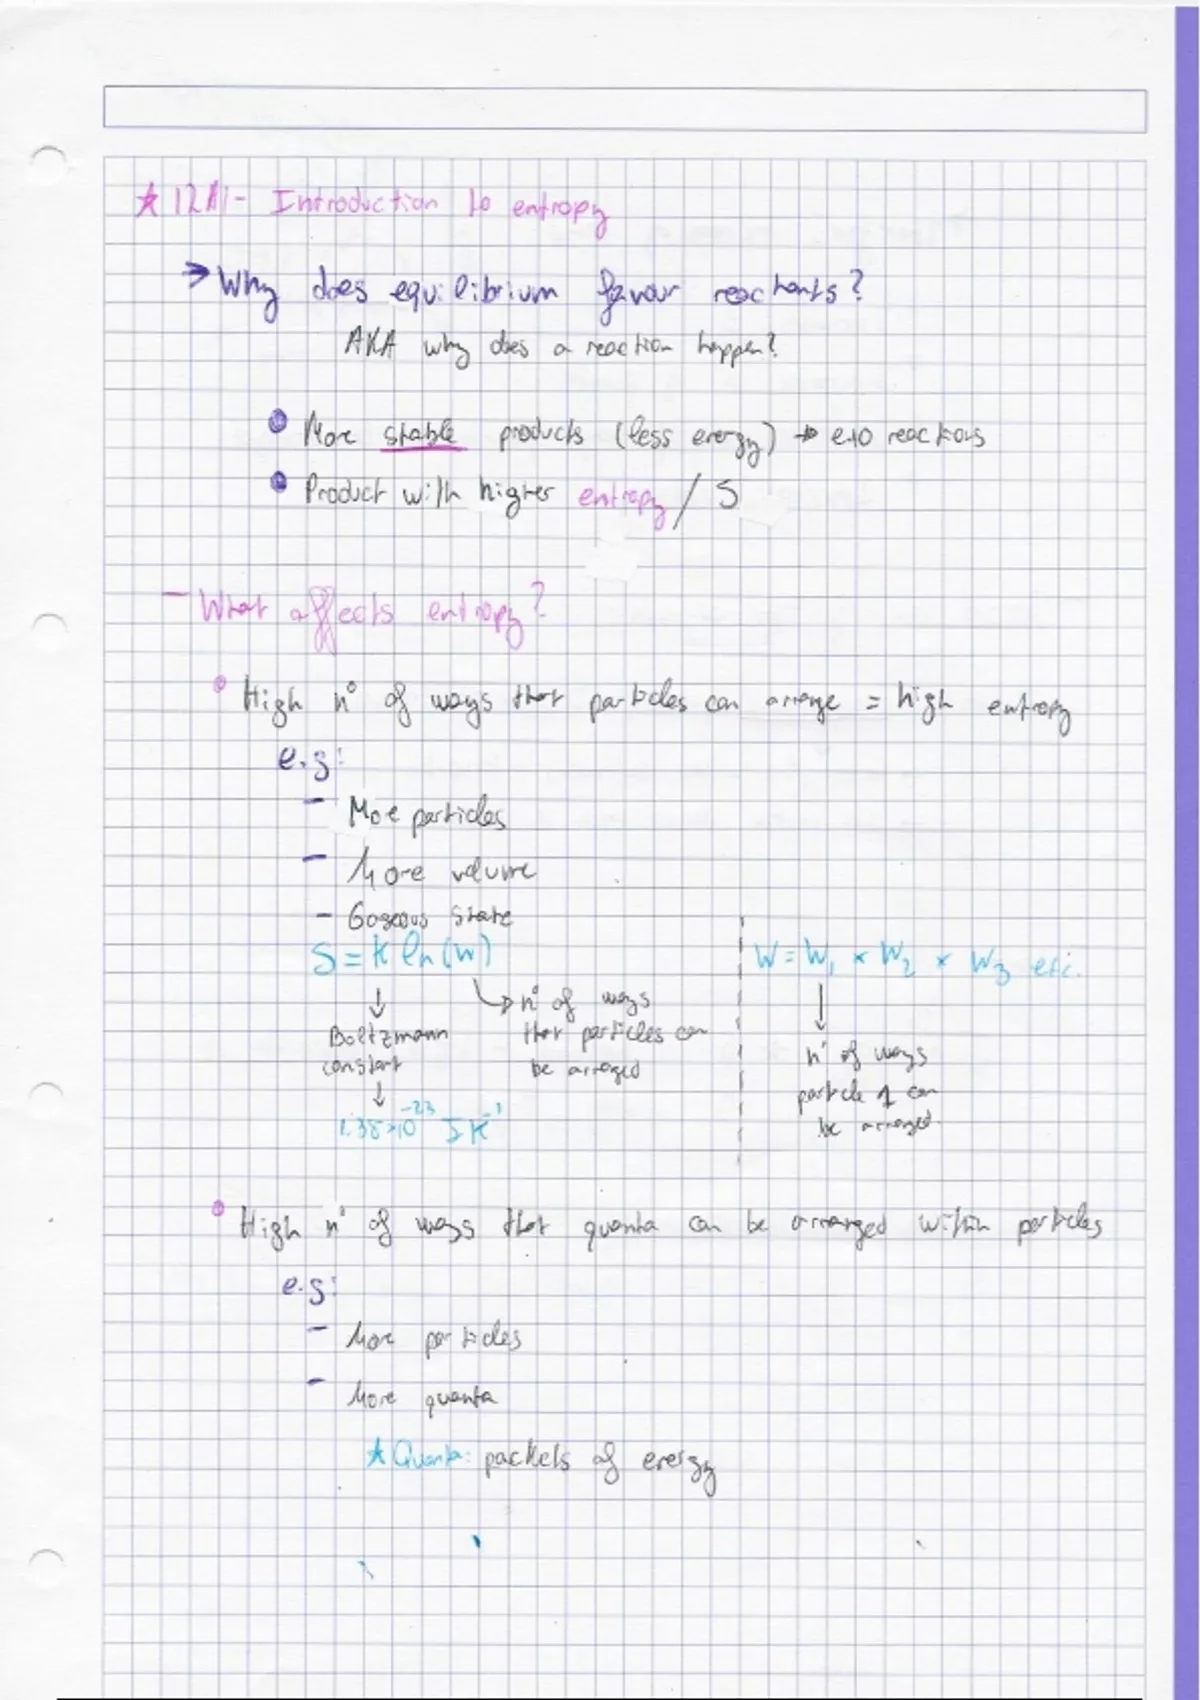 ★ 12A1 - Introduction to entropy
→ Why does equilibrium favour reactants?
AKA why does a reaction happen?
More stable products (less energy) → exo reactions
Product with higher entropy / S
- What affects entropy?
High n° of ways that particles can arrange = high entropy
e.g:
- More particles
- More volume
- Gaseous state
S = K ln(W)
W = W₁ × W₂ × W₃ etc.
↓ Boltzmann constant
↓ 1.38×10⁻²³ J K⁻¹
↳ n° of ways
that particles can
be arranged
↓
n° of ways
particle 1 can
be arranged.
High n° of ways that quanta can be arranged within particles
e.g:
- More particles
- More quanta
★ Quanta: packets of energy